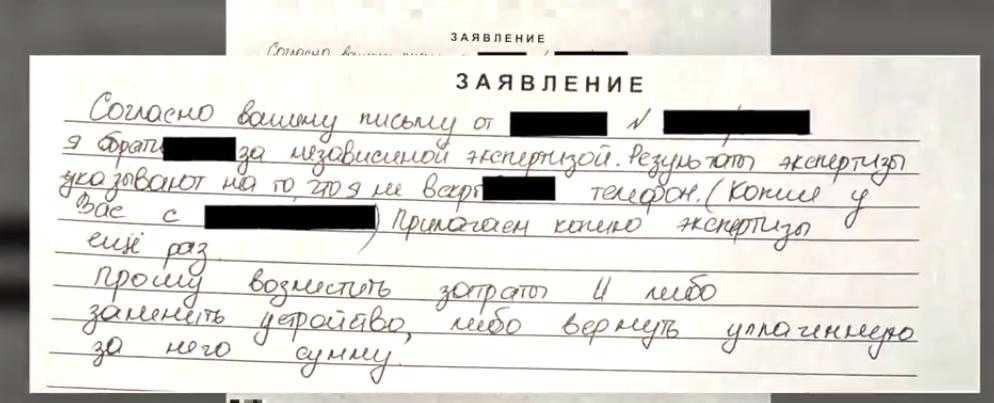 ЗАЯВЛЕНИЕ
Согласно
ЗАЯВЛЕНИЕ
Согласно вашему письму от N
я обрати за независимой экспертизой. Результаты экспертизы
указывают на то, что я не вскр телефон. (Копие у
Вас с ) Прилагаем копию экспертизы
ещё раз.
прошу возместить затраты и либо
заменить устройство, либо вернуть уплаченную
за него сумму.